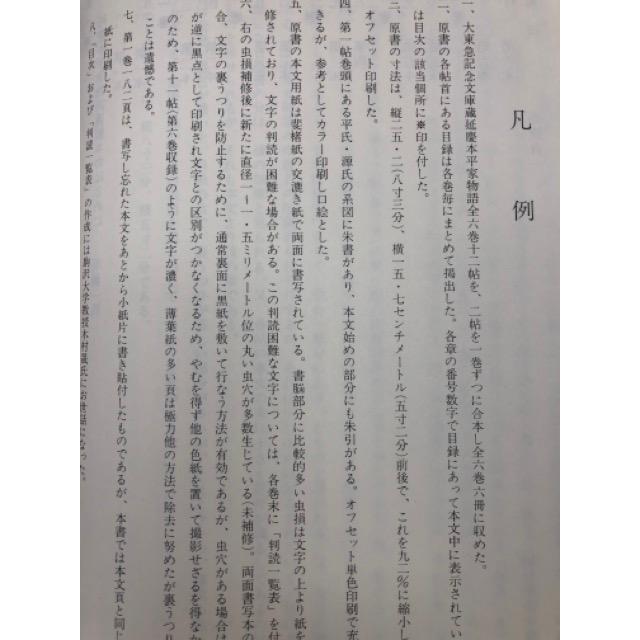 凡例
一、大東急記念文庫蔵延慶本平家物語全六巻十二帖を、二帖を一巻ずつに合本し全六巻六冊に収めた。
二、原書の各帖首にある目録は各巻毎にまとめて掲出した。各章の番号数字で目録にあって本文中に表示されてい
は目次の該当個所に※印を付した。
三、原書の寸法は、縦二五・二(八寸三分)、横一五・七センチメートル(五寸二分)前後で、これを九二%に縮小し
オフセット印刷した。
四、第一帖巻頭にある平氏・源氏の系図に朱書があり、本文始めの部分にも朱引がある。オフセット単色印刷で充
きるが、参考としてカラー印刷し口絵とした。
五、原書の本文用紙は斐楮紙の交漉き紙で両面に書写されている。書脳部分に比較的多い虫損は文字の上より紙を
修されており、文字の判読が困難な場合がある。この判読困難な文字については、各巻末に「判読一覧表」を付
六、右の虫損補修後に新たに直径一ー一・五ミリメートル位の丸い虫穴が多数生じている(未補修)。両面書写本の
合、文字の裏うつりを防止するために、通常裏面に黒紙を敷いて行なう方法が有効であるが、虫穴がある場合は
が逆に黒点として印刷され文字との区別がつかなくなるため、やむを得ず他の色紙を置いて撮影せざるを得なか
のため、第十一帖(第六巻収録)のように文字が濃く、薄葉紙の多い頁は極力他の方法で除去に努めたが裏うつり
ことは遺憾である。
七、第一巻一八二頁は、書写し忘れた本文をあとから小紙片に書き貼付したものであるが、本書では本文頁と同じ
紙に印刷した。
八、「目次」および「判読一覧表」の作成には駒沢大学教授木村晟氏にお世話になった。